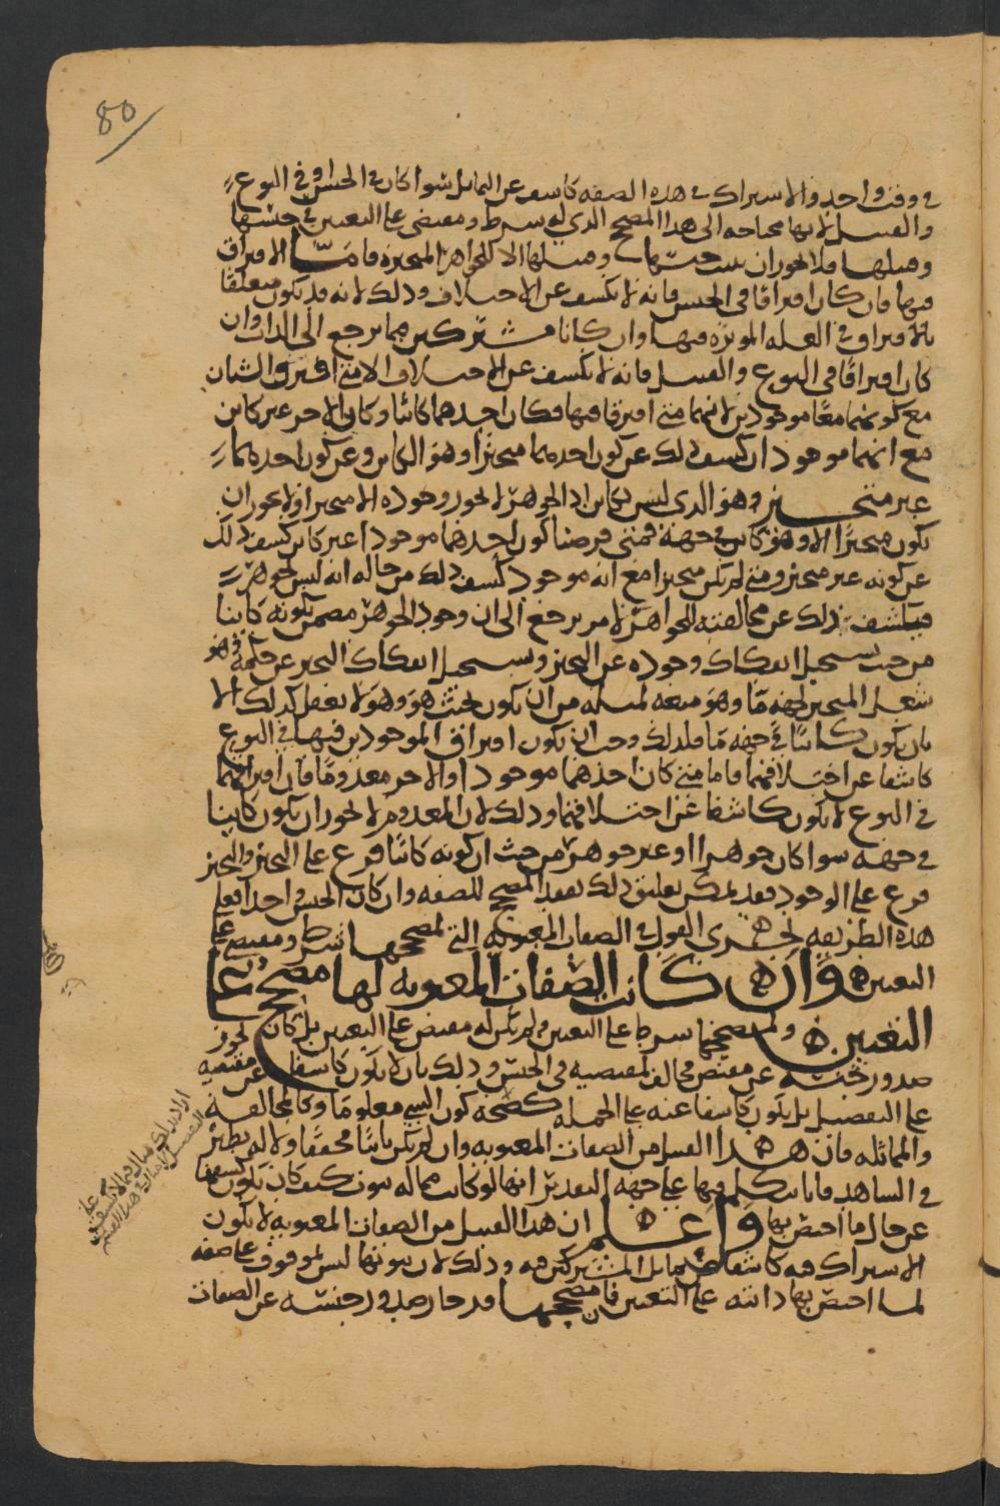 80
في وقت واحد والاشتراك في هذه الصفة كاشف عن التماثل سوا كان في الجنس او في النوع
والقبيل لانها محتاجه الى هذا المصحح الذي له شرط ومقتضي على التعيين في جنسها
وقبيلها فلا يجوز ان يثبت جنسها وقبيلها الا للجواهر المتحيزه فاما الافتراق
فيها فان كان افتراقا في الجنس فانه لا يكشف عن الاختلاف وذلك لانه قد يكون متعلقا
بالافتراق في العله الموثره فيها وان كانا مشتركين فيما يرجع الى الذات وان
كان افتراقا في النوع والقبيل فانه لا يكشف عن الاختلاف الا متى افترق الشيان
مع كونهما معا موجودين لانهما متى افترقا فيها فكان احدهما كائنا وكان الاخر غير كاين
مع انهما موجودان كشف ذلك عن كون احدهما متحيزا وهو الكاين وعن كون احدهما
غير متحيز وهو الذي ليس بكاين اذ الجوهر لا يجوز وجوده الا متحيزا ولا يجوز ان
يكون متحيزا الا وهو كاين في جهة فمتى فرضنا كون احدهما موجودا غير كاين كشف ذلك
عن كونه غير متحيز ومتى لم يكن متحيزا مع انه موجود كشف ذلك من حاله انه ليس بجوهر
فيكشف ذلك عن مخالفته للجواهر لامر يرجع الى ان وجود الجوهر مضمن بكونه كاينا
من حيث يستحيل انفكاك وجوده عن التحيز ويستحيل انفكاك التحيز عن حكمه وهو
شغل المتحيز لجهة ما وهو منعه لمثله من ان يكون بحيث هو وهو لا يعقل كذلك الا
بان يكون كائنا في جهة ما فلذلك وجب ان يكون افتراق الموجودين فيها في النوع
كاشفا عن اختلافهما فاما متى كان احدهما موجودا والاخر معدوما فان افتراقهما
في النوع لا يكون كاشفا عن اختلافهما وذلك لان المعدوم لا يجوز ان يكون كاينا
في جهه سوا كان جوهرا او غير جوهر من حيث ان كونه كائنا فرع على التحيز والتحيز
فرع على الوجود فقد يمكن تعليق ذلك بفقد المصحح للصفه وان كان الجنس واحدا فعلى
هذه الطريقه يجري القول في الصفات المعنويه التي لمصححها شرط ومقتضي على
التعيين وان كانت الصفات المعنويه لها مصحح على
التعيين ولمصححها شرط على التعيين ولم يكن له مقتض على التعيين بل كان يجوز
صدور جنسه عن مقتض مخالف لمقتضيه في الجنس وذلك بان لا يكون كاشفا عن مقتضيه
على التفصيل بل يكون كاشفا عنه على الجمله كصحه كون الشي معلوما وكالمخالفه
والمماثله فان هذا القبيل من الصفات المعنويه وان لم يكن ثابتا محققا ولا له نظير
في الشاهد فانا نتكلم فيها على جهه التقدير انها لو كانت مما له ثبوت كيف كان يكون كشفها
عن حال ما اختص بها واعلم ان هذا القبيل من الصفات المعنويه لا يكون
الاشتراك فيه كاشفا عن تماثل المشتركين فيه وذلك لان ثبوتها ليس لموقوف على صفه
لما اختص بها ذاتيه على التعيين فان مصححها قد جاز صدور جنسه عن الصفات